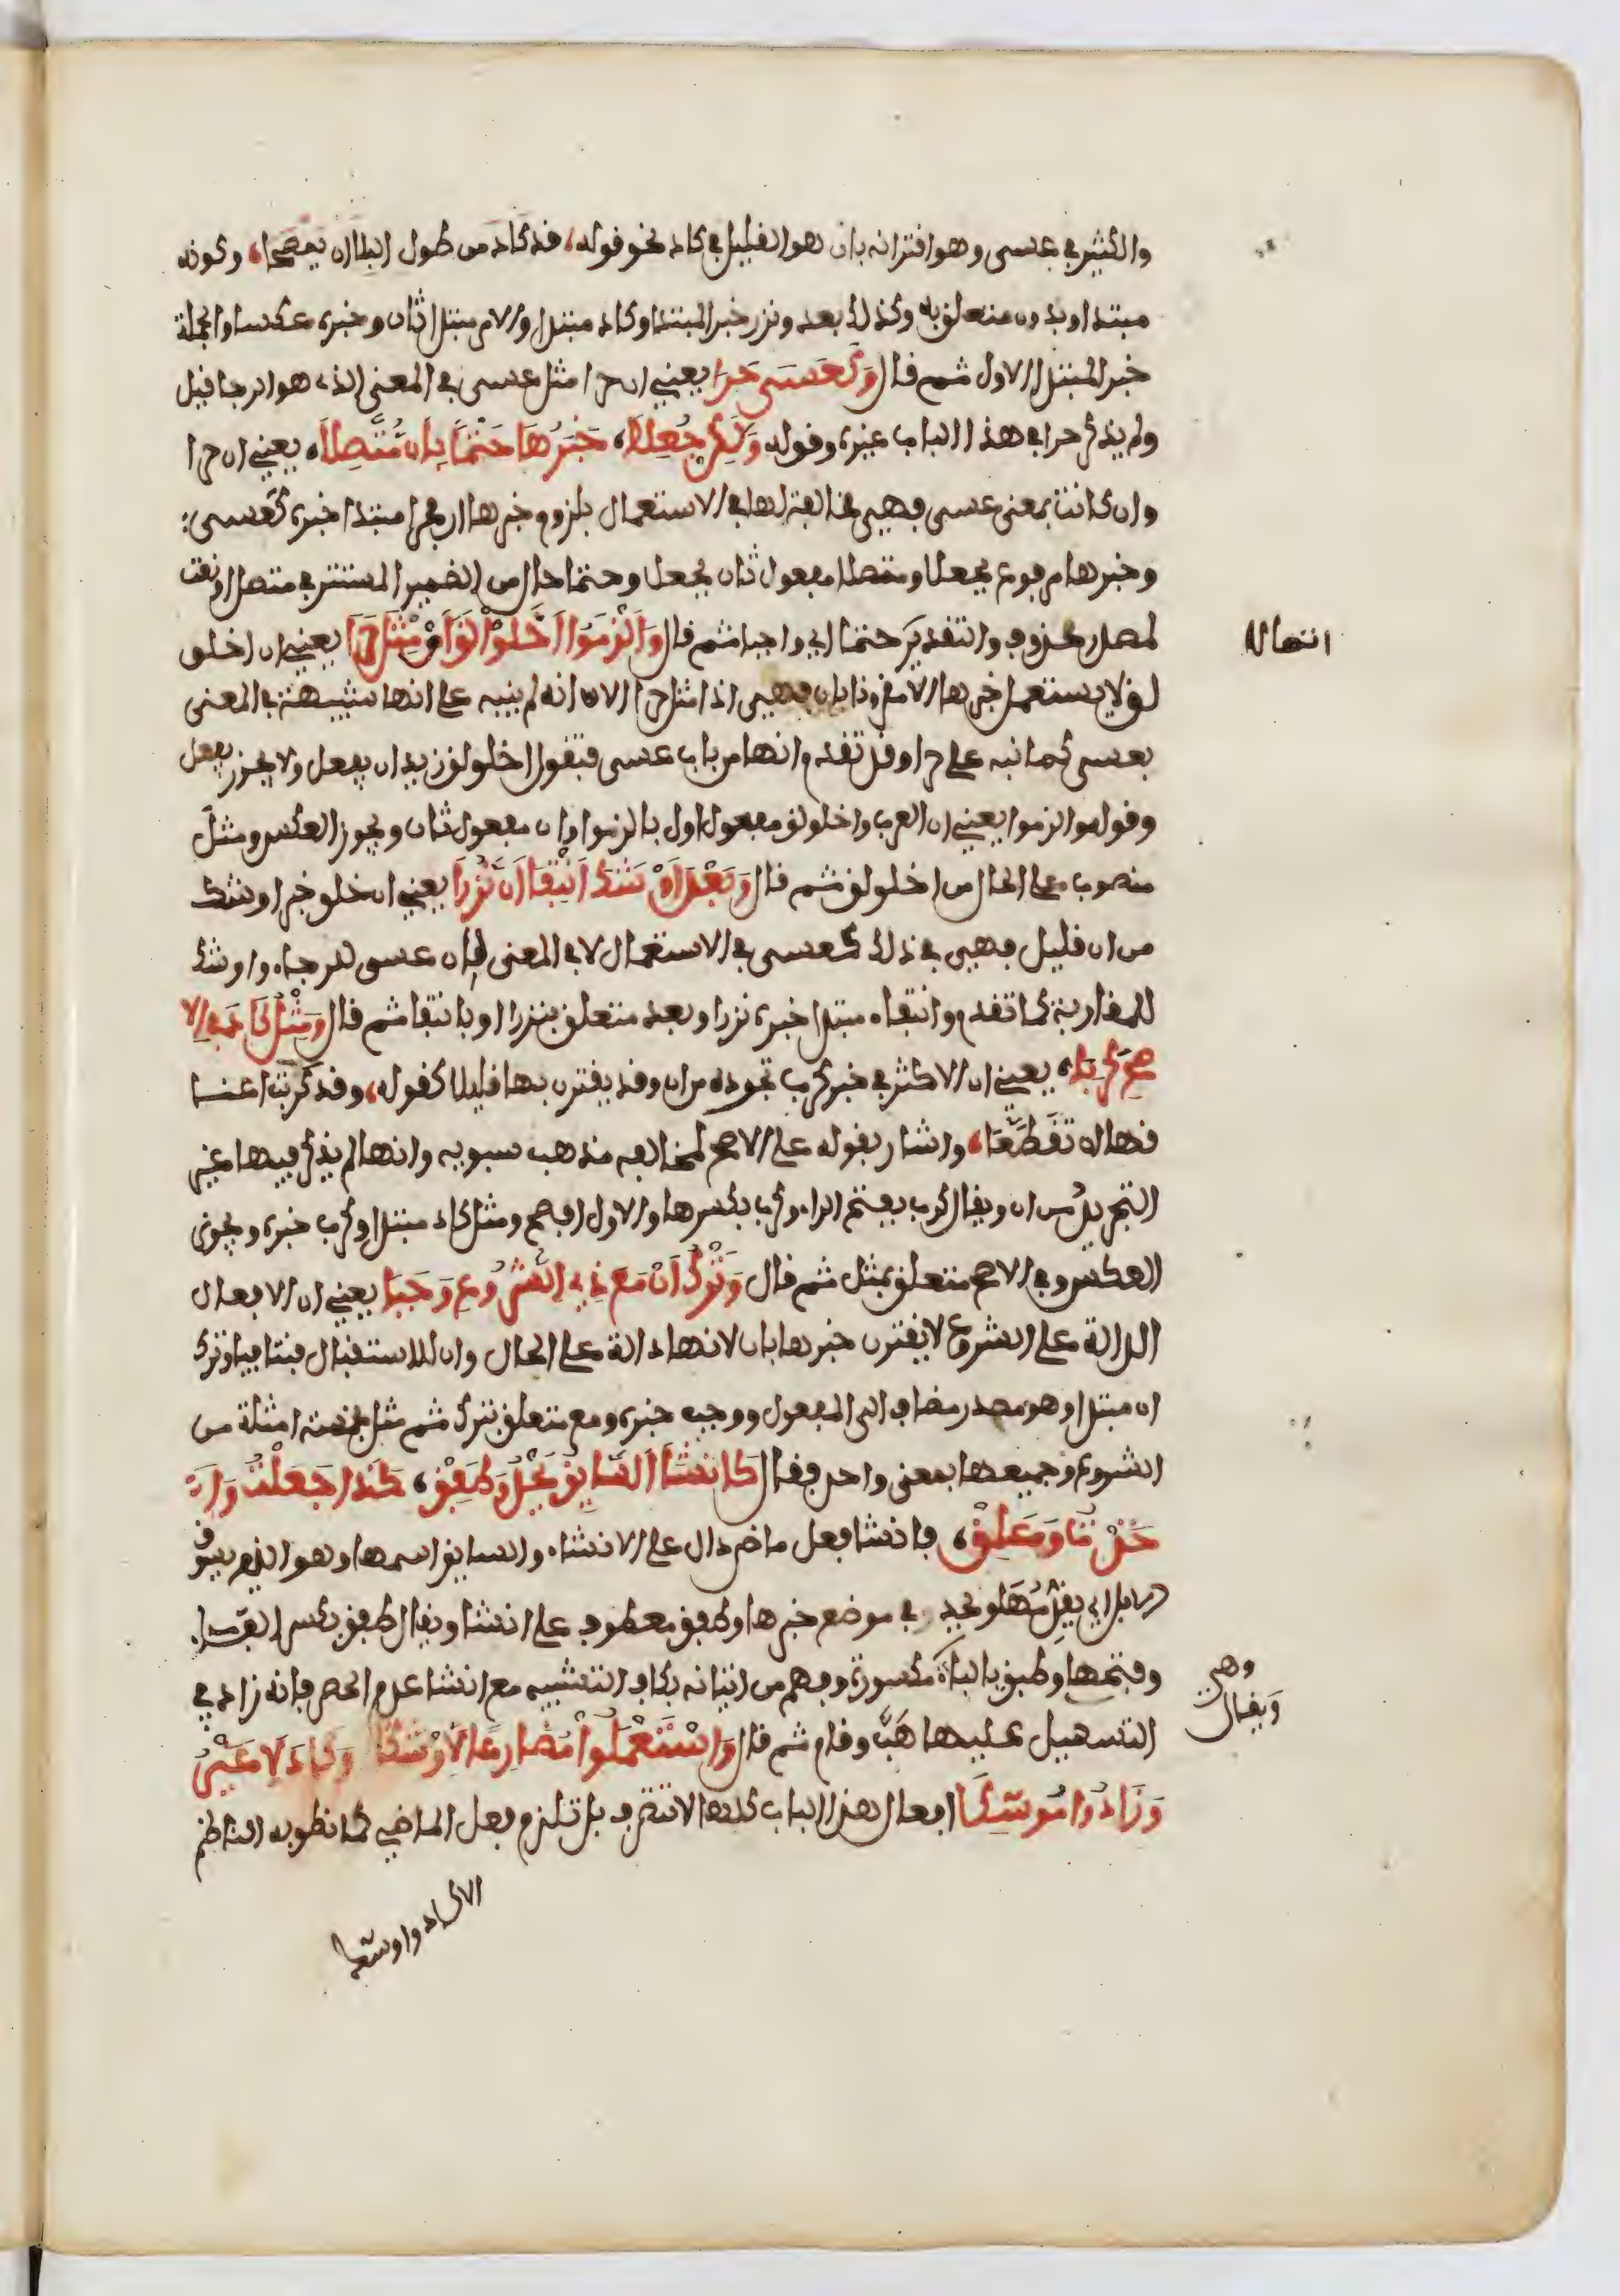 والكثير في عسى وهو اقترانه بان هو القليل في كاد نحو قوله، قد كاد من طول البلا ان يمصحا، وكونه
مبتدا وبدون متعلق به وكذلك بعد ونزر خبر المبتدا وكاد مبتدا والامر مبتدا ثان وخبره عكسا والجملة
خبر المبتدا الاول ثم قال وَكَعَسَى حَرَا يعني ان حرا مثل عسى في المعنى الذي هو الرجا قيل
ولم يذكر حرا في هذا الباب غيره وقوله وَلَكِنْ جُعِلَا، خَبَرُهَا حَتْمًا بِأَنْ مُتَّصِلَا، يعني ان حرا
وان كانت بمعنى عسى فهي مخالفة لها في الاستعمال بلزوم خبرها ان وحرا مبتدا خبره كعسى:
وخبرها مرفوع بجعلا ومتصلا مفعول ثان بجعل وحتما حال من الضمير المستتر في متصل او نعت
لمصدر محذوف والتقدير حتما اي واجبا ثم قال وَأَلْزَمُوا اخْلَوْلَقَ أَنْ مِثْلَ حَرَا يعني ان اخلو
لق لا يستعمل خبرها الا مقرونا بان فهي اذا مثل حرا الا انه لم ينبه على انها شبيهة في المعنى
بعسى كما نبه على حرا وقد تقدم انها من باب عسى فتقول اخلولق زيد ان يفعل ولا يجوز يفعل
وقوله والزموا يعني ان العرب واخلولق مفعول اول بالزموا وان مفعول ثان ويجوز العكس ومثل
منصوب على الحال من اخلولق ثم قال وَبَعْدَ أَوْشَكَ انْتِفَا أَنْ نَزُرَا يعني ان خلو خبر اوشك
من ان قليل فهي في ذلك كعسى في الاستعمال لا في المعنى فان عسى للرجاء واوشك
للمقاربة كما تقدم وانتفاء مبتدا خبره نزرا وبعد متعلق بنزرا او بانتفا ثم قال وَمِثْلُ كَادَ فِي الا
صَحِّ كَرَبَا، يعني ان الاكثر في خبر كرب تجرده من ان وقد يقترن بها قليلا كقوله، وقد كربت اعنا
قها ان تَقَطَّعَا، واشار بقوله على الاصح لمخالفه مذهب سبويه وانها لم يذكر فيها غير
التجريد من ان ويقال كرب بفتح الراء وكرب بكسرها والاول افصح ومثل كاد مبتدا وكرب خبره ويجوز
العكس وفي الاصح متعلق بمثل ثم قال وَتَرْكُ أَنْ مَعَ ذِي الشُّرُوعِ وَجَبَا يعني ان الافعال
الدالة على الشروع لا يقترن خبرها بان لانها دالة على الحال وان للاستقبال فتنافيا وترك
ان مبتدا وهو مصدر مضاف الى المفعول ووجب خبره ومع متعلق بترك ثم مثل بخمسة امثلة من
الشروع وجميعها بمعنى واحد فقال كَأَنْشَأَ السَّائِقُ يَحْدُو وَطَفِقْ، كَذَا جَعَلْتُ وَأَ
خَذْتُ وَعَلِقْ، فانشا فعل ماض دال على الانشاء والسايق اسمها وهو الذي يسوق
الابل اي يقدمها ويحدو في موضع خبرها وطفق معطوف على انشا ويقال طفق بكسر الفاء
وفتحها وطبق بالباء مكسورة وفهم من اتيانه بكاف التشبيه مع انشا عدم الحصر فانه زاد في
التسهيل عليها هَبَّ وقام ثم قال وَاسْتَعْمَلُوا مُضَارِعًا لأَوْشَكَا وَكَادَ لَا غَيْرُ
وَزَادُوا مُوشِكَا افعال هذا الباب كلها لا تتصرف بل تلزم فعل الماضي كما نطق به الناظم
الا كاد واوشك
انتهاله
وهي
ويقال